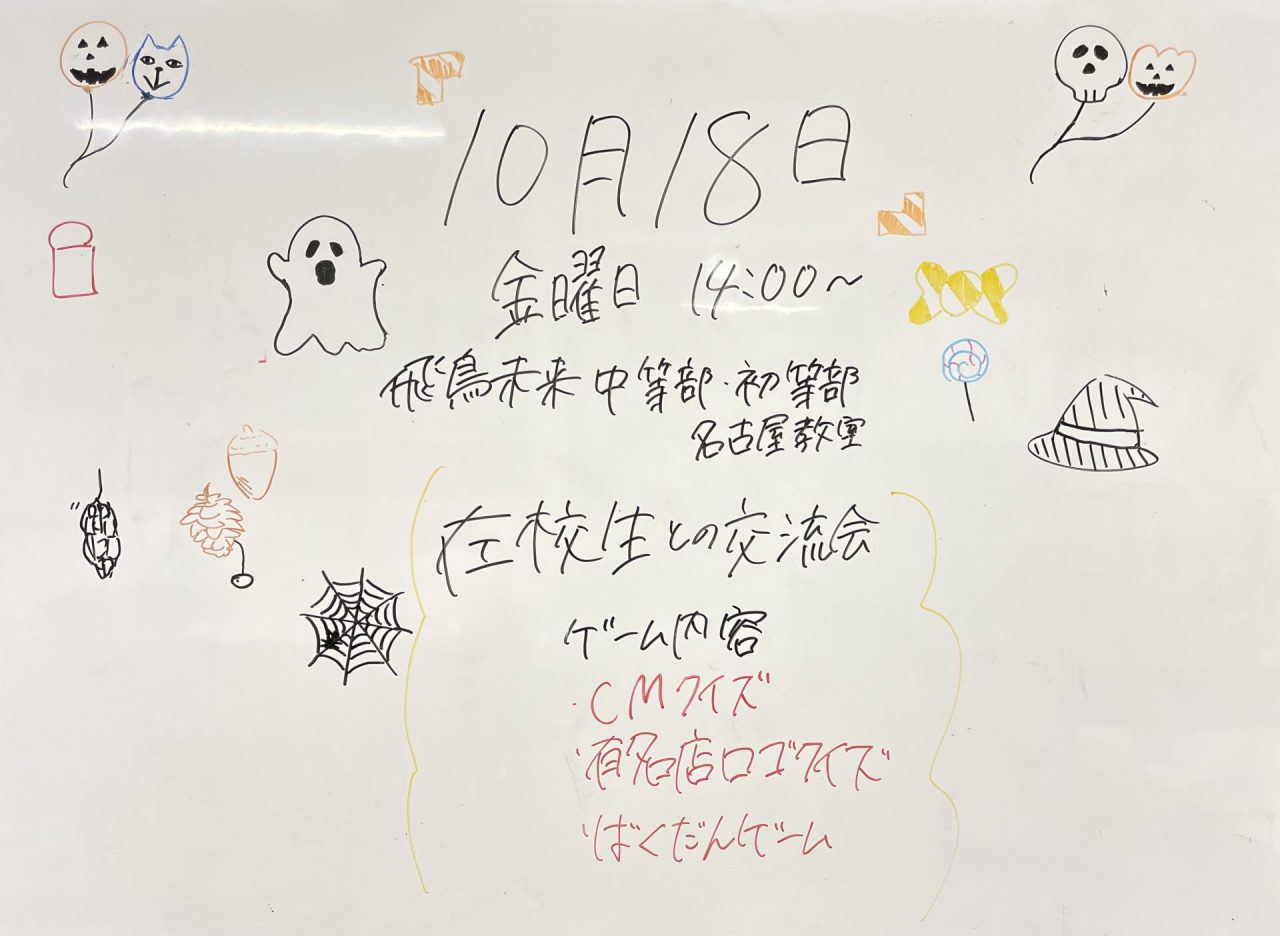 10月18日
金曜日 14:00～
飛鳥未来 中等部・初等部
名古屋教室
在校生との交流会
ゲーム内容
・CMクイズ
・有名店ロゴクイズ
・ばくだんゲーム